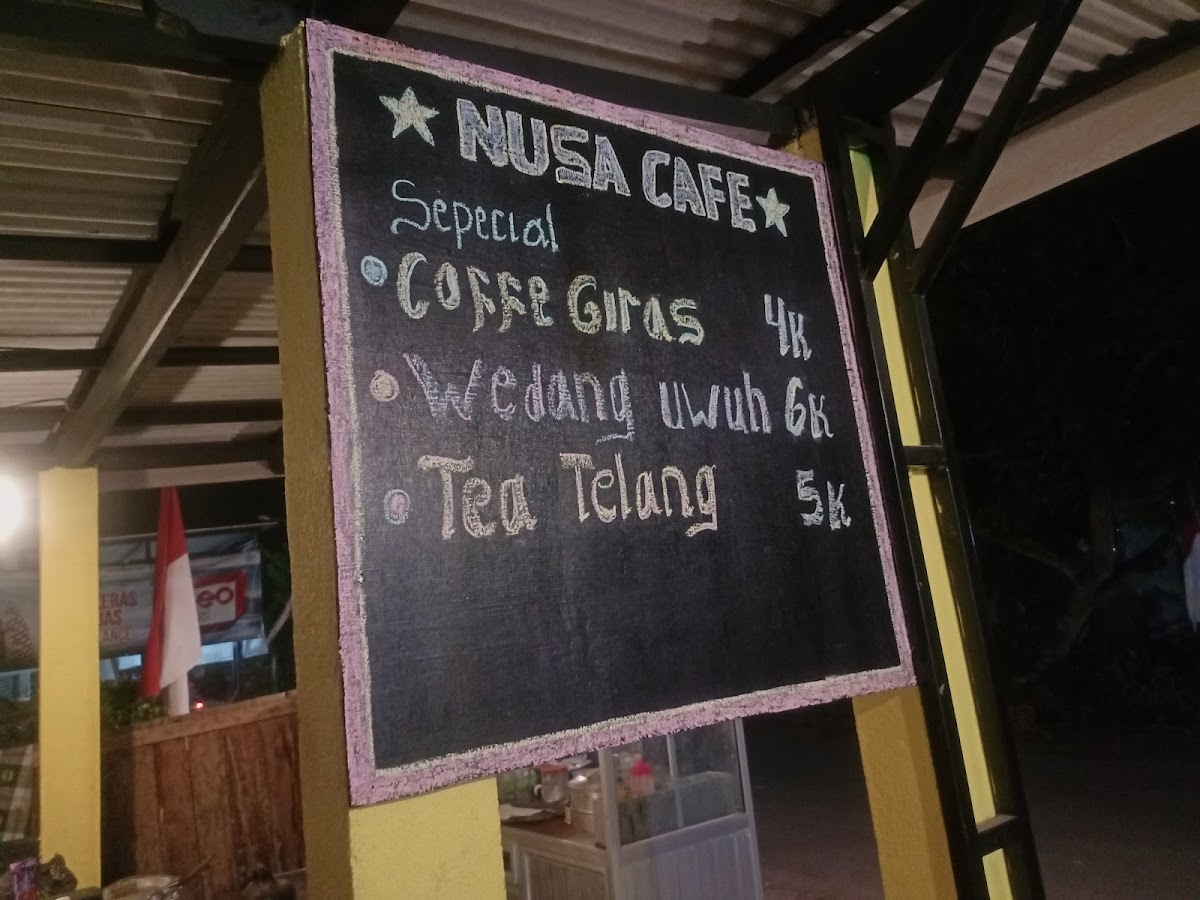 NUSA CAFE
Sepecial
Coffe Giras 4K
Wedang uwuh 6K
Tea Telang 5K